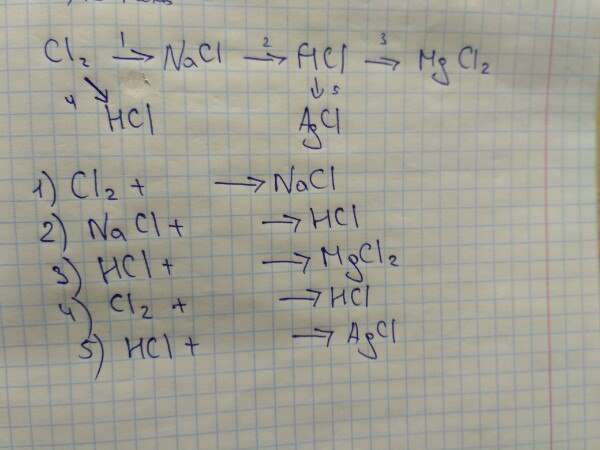 Cl₂ →1 NaCl →2 HCl →3 MgCl₂
4 ↘ ↓ 5
HCl AgCl
1) Cl₂ + → NaCl
2) NaCl + → HCl
3) HCl + → MgCl₂
4) Cl₂ + → HCl
5) HCl + → AgCl